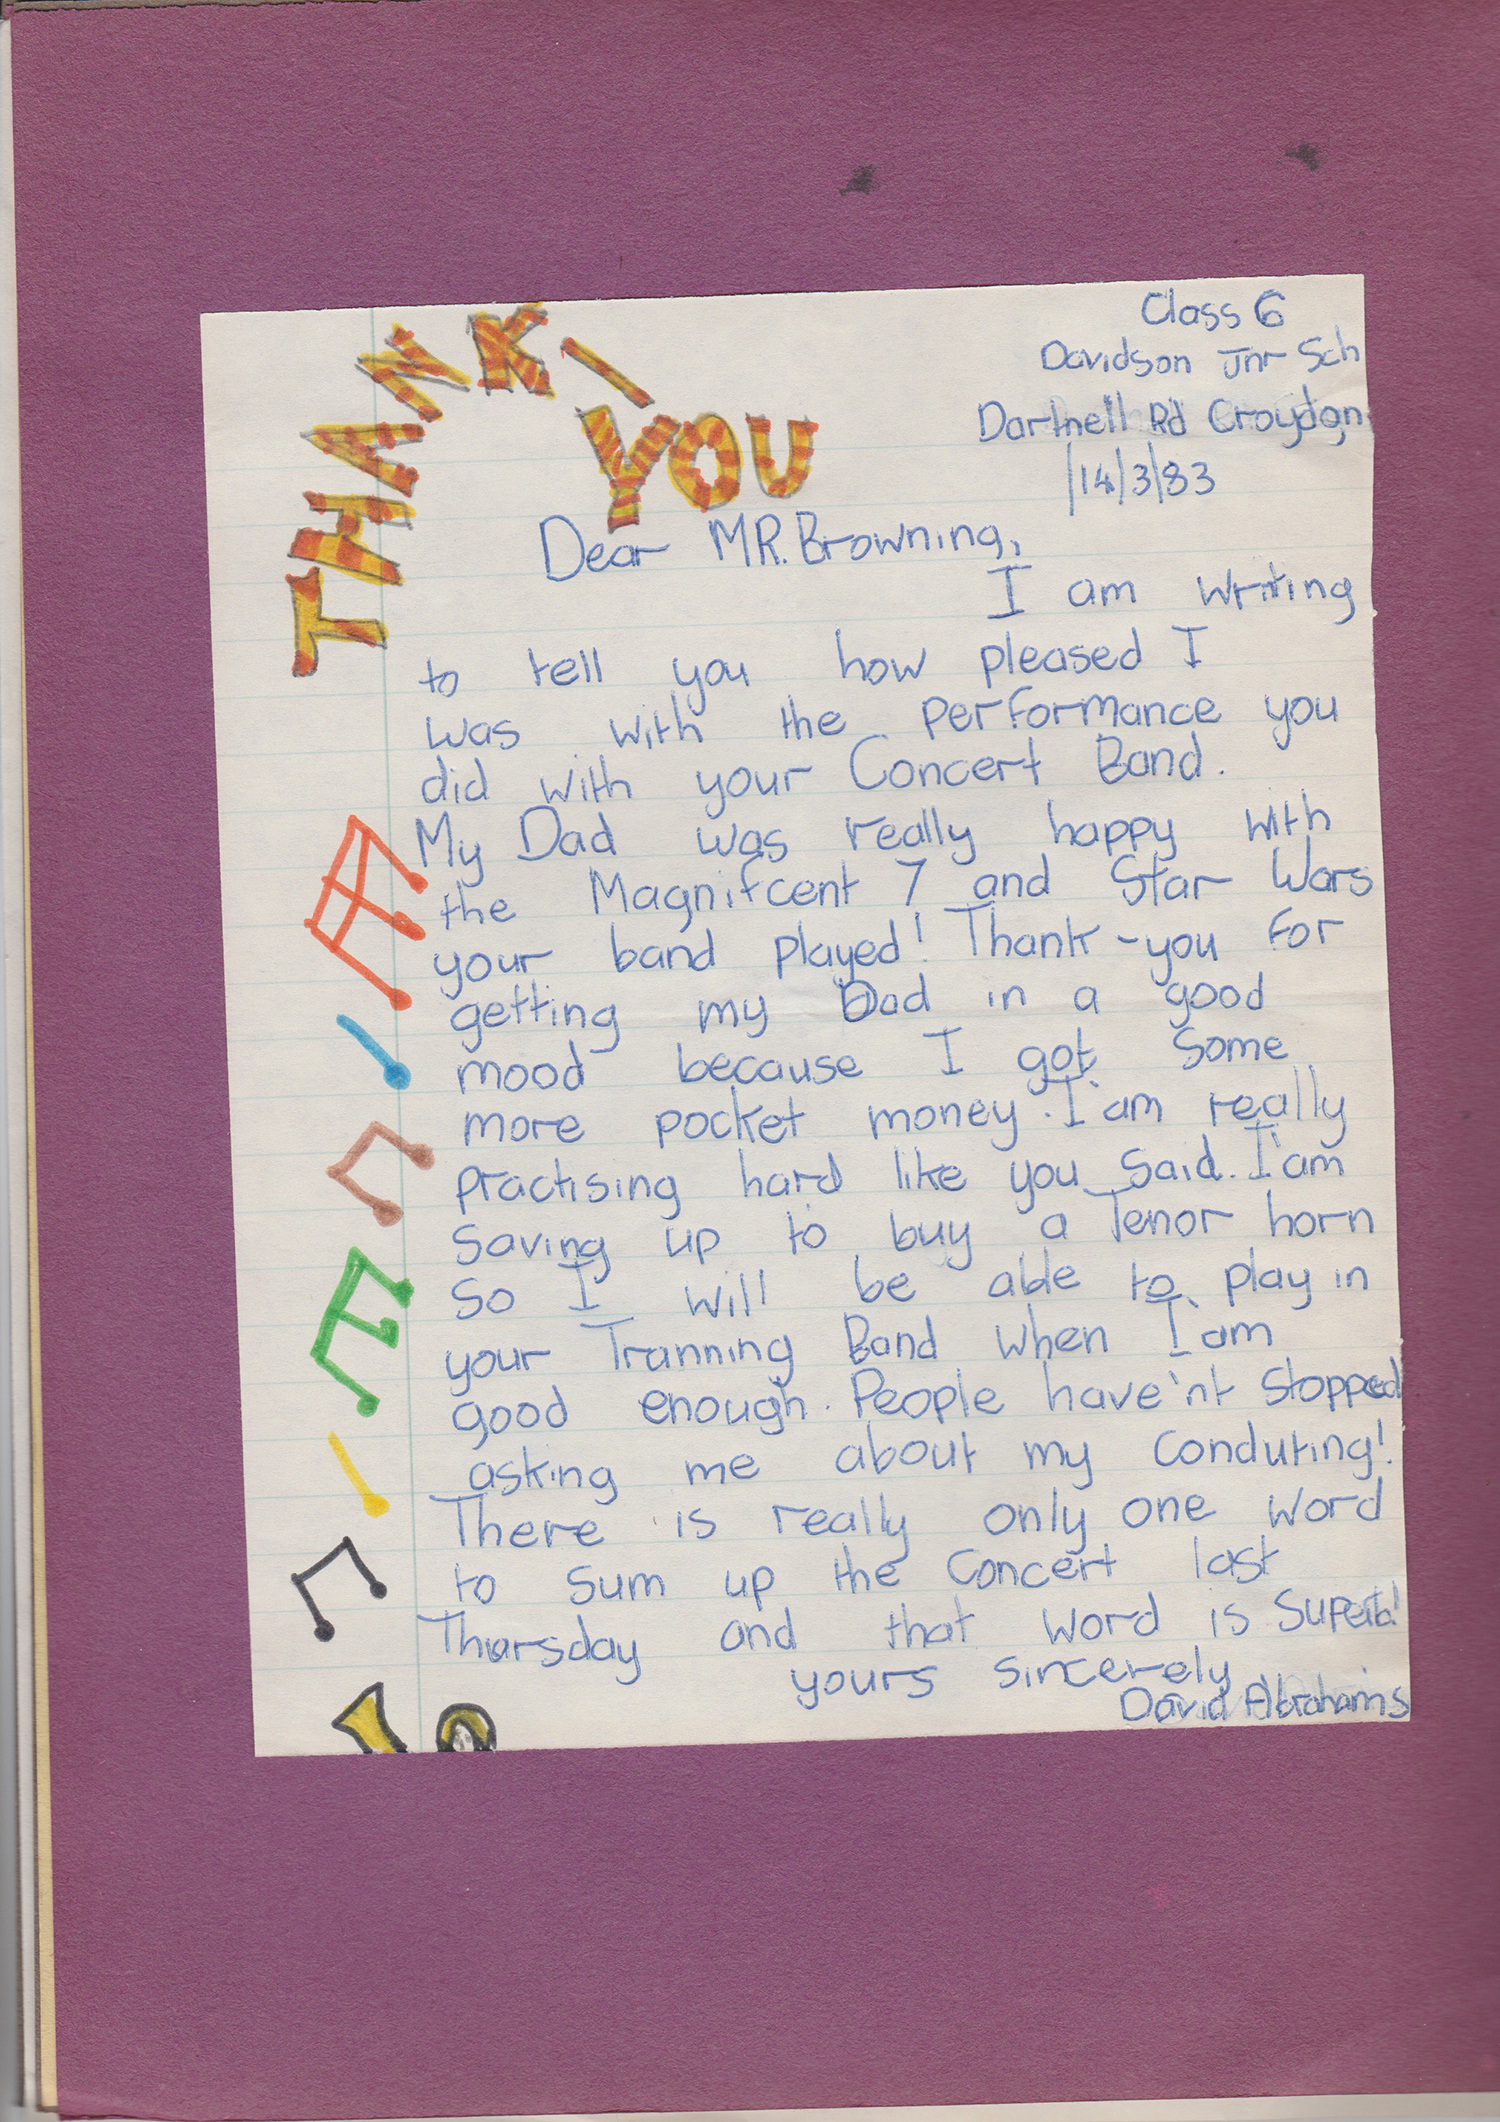 THANK-YOU
Class 6
Davidson Jnr Sch
Dartnell Rd Croydon
14/3/83
Dear MR. Browning,
I am writing
to tell you how pleased I
was with the performance you
did with your Concert Band.
My Dad was really happy with
the Magnifcent 7 and Star Wars
your band played! Thank-you for
getting my Dad in a good
mood because I got some
more pocket money. I'am really
practising hard like you said. I'am
saving up to buy a Tenor horn
so I will be able to play in
your Tranning Band when I'am
good enough. People have'nt stopped
asking me about my conduting!
There is really only one word
to sum up the concert last
Thursday and that word is Superb!
yours sincerely
David Abrahams